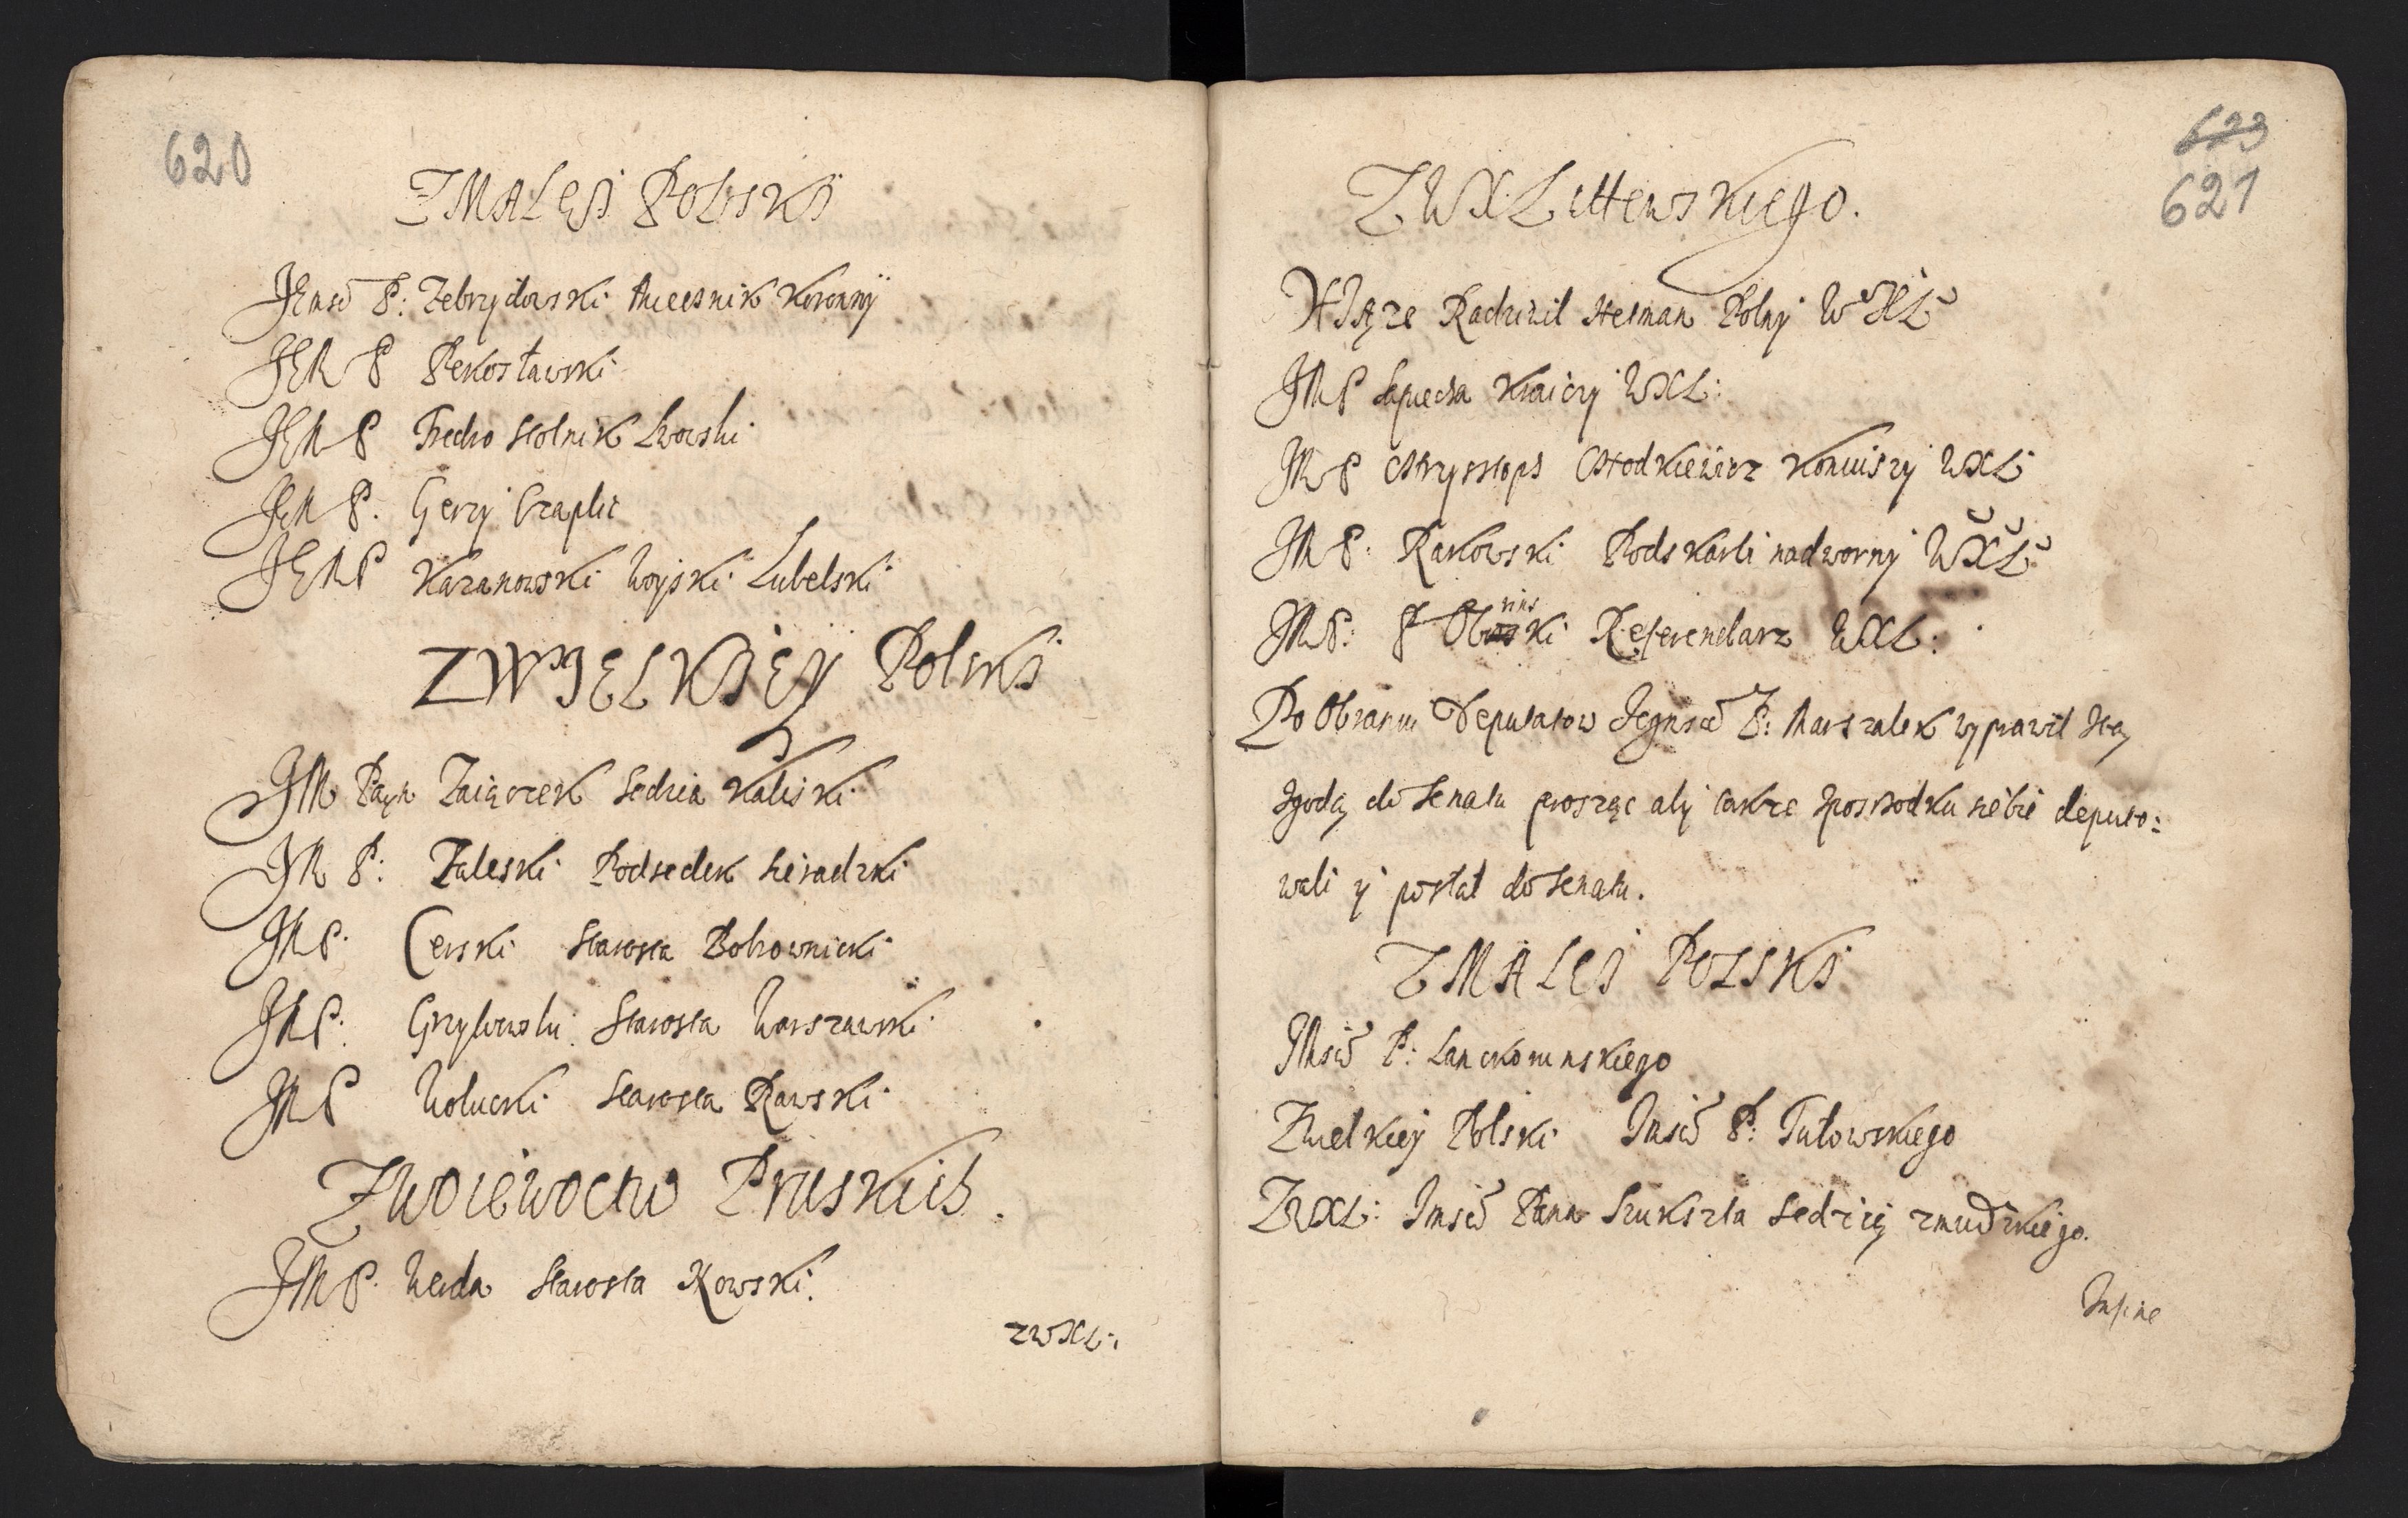 620
Z MALEJ POLSKJ
JEmsc P: Zebrzydowski Miecsnik Koronny
JEM P Pekosławski
JEM P Fredro Stolnik Lwowski
JEM P. Gerzy Czaplic
JEMP Kazanowski Woyski Lubelski
Z WJELKJEY Polski
JM Pan Zaiączek Sedzia Kaliski
JM P: Zaleski Podsedek Sieradzki
JMP. Cerski Starosta Bobrownicki
JMP. Grzybowski Starosta Warszawski
JMP Wolucki Starosta Rawski
Z Woiewocztw Pruskich.
JMP. Werda Starosta Nowski.
zwXL:
623
621
Z WX Littewskiego.
XJąze Radziwil Hetman Polny W XL
JMP Sapieha Kraiczy WXL:
JMP Chrystoph Chodkiewicz Koniuszy WXL
JMP: Rakowski Podskarbi nadworny WXL
JMP: P Obrinski Referendarz WXL.
Po Obraniu Deputatow Jegmsc P: Marszalek wyprawil sta
zgodą do Senatu prosząc aby takze zposrzodku siebie deputo:
wali y posłał do Senatu.
Z MALEJ POLSKJ
JMsci P: Lanckorunskiego
Zwielkiey Polski Jmsci P: Tutowskiego
ZWXL: Jmsci Pana Szukszta Sedzię zmudzkiego.
Jnfine